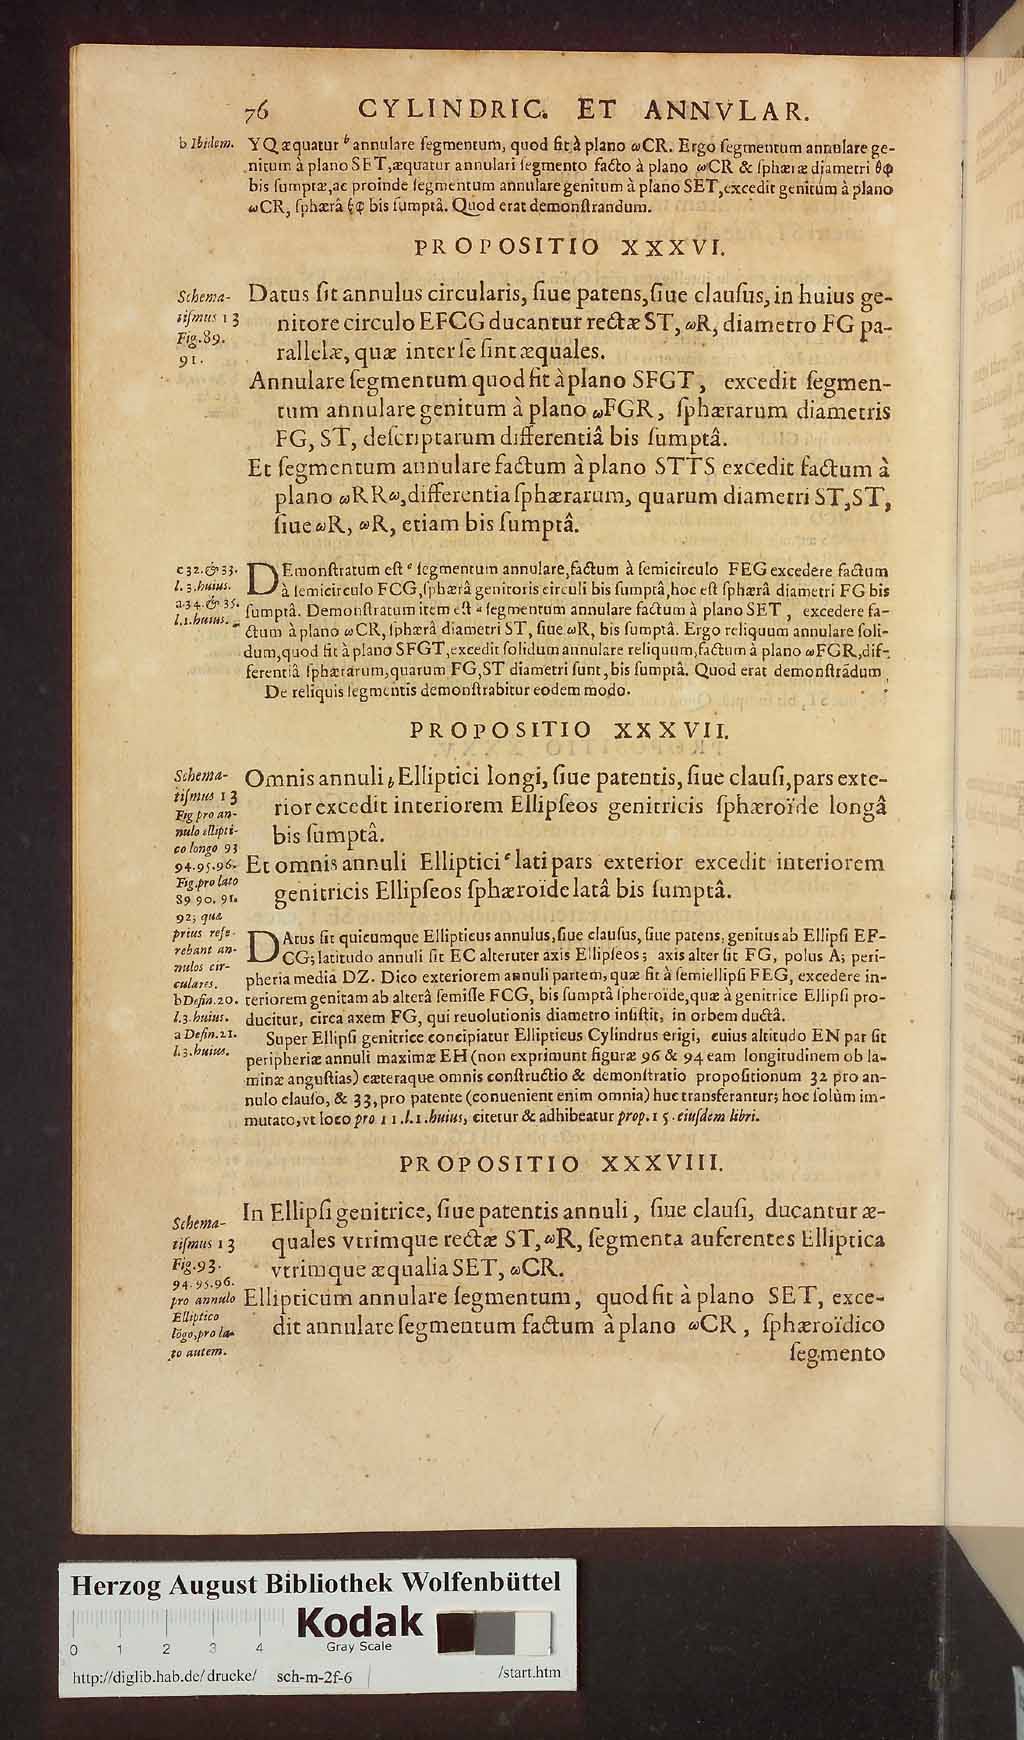 76 CYLINDRIC. ET ANNVLAR.
b Ibidem.
YQ æquatur b annulare ſegmentum, quod fit à plano ωCR. Ergo ſegmentum annulare ge-
nitum à plano SET, æquatur annulari ſegmento facto à plano ωCR & ſphæræ diametri θφ
bis ſumptæ, ac proinde ſegmentum annulare genitum à plano SET, excedit genitum à plano
ωCR, ſphærâ θφ bis ſumptâ. Quod erat demonſtrandum.
PROPOSITIO XXXVI.
Schema-
tiſmus 13
Fig. 89.
91.
Datus ſit annulus circularis, ſiue patens, ſiue clauſus, in huius ge-
nitore circulo EFCG ducantur rectæ ST, ωR, diametro FG pa-
rallelæ, quæ inter ſe ſint æquales.
Annulare ſegmentum quod fit à plano SFGT, excedit ſegmen-
tum annulare genitum à plano ωFGR, ſphærarum diametris
FG, ST, deſcriptarum differentiâ bis ſumptâ.
Et ſegmentum annulare factum à plano STTS excedit factum à
plano ωRRω, differentia ſphærarum, quarum diametri ST, ST,
ſiue ωR, ωR, etiam bis ſumptâ.
c 32. & 33.
l. 3. huius.
a 34. & 35.
l. 1. huius.
DEmonſtratum eſt c ſegmentum annulare, factum à ſemicirculo FEG excedere factum
à ſemicirculo FCG, ſphærâ genitoris circuli bis ſumptâ, hoc eſt ſphærâ diametri FG bis
ſumptâ. Demonſtratum item eſt a ſegmentum annulare factum à plano SET, excedere fa-
ctum à plano ωCR, ſphærâ diametri ST, ſiue ωR, bis ſumptâ. Ergo reliquum annulare ſoli-
dum, quod fit à plano SFGT, excedit ſolidum annulare reliquum, factum à plano ωFGR, dif-
ferentiâ ſphærarum, quarum FG, ST diametri ſunt, bis ſumptâ. Quod erat demonſtrādum.
De reliquis ſegmentis demonſtrabitur eodem modo.
PROPOSITIO XXXVII.
Schema-
tiſmus 13
Fig pro an-
nulo ellipti-
co longo 93
94. 95. 96.
Fig. pro lato
89 90. 91.
92; quæ
prius refe-
rebant an-
nulos cir-
culares.
b Defin. 20.
l. 3. huius.
a Defin. 21.
l. 3. huius.
Omnis annuli b Elliptici longi, ſiue patentis, ſiue clauſi, pars exte-
rior excedit interiorem Ellipſeos genitricis ſphæroïde longâ
bis ſumptâ.
Et omnis annuli Elliptici c lati pars exterior excedit interiorem
genitricis Ellipſeos ſphæroïde latâ bis ſumptâ.
DAtus ſit quicumque Ellipticus annulus, ſiue clauſus, ſiue patens, genitus ab Ellipſi EF-
CG; latitudo annuli ſit EC alteruter axis Ellipſeos; axis alter ſit FG, polus A; peri-
pheria media DZ. Dico exteriorem annuli partem, quæ fit à ſemiellipſi FEG, excedere in-
teriorem genitam ab alterâ ſemiſſe FCG, bis ſumptâ ſpheroïde, quæ à genitrice Ellipſi pro-
ducitur, circa axem FG, qui reuolutionis diametro inſiſtit, in orbem ductâ.
Super Ellipſi genitrice concipiatur Ellipticus Cylindrus erigi, cuius altitudo EN par ſit
peripheriæ annuli maximæ EH (non exprimunt figuræ 96 & 94 eam longitudinem ob la-
minæ anguſtias) cæteraque omnis conſtructio & demonſtratio propoſitionum 32 pro an-
nulo clauſo, & 33, pro patente (conuenient enim omnia) huc transferantur; hoc ſolùm im-
mutato, vt loco pro 11. l. 1. huius, citetur & adhibeatur prop. 15. eiuſdem libri.
PROPOSITIO XXXVIII.
Schema-
tiſmus 13
Fig. 93.
94. 95. 96.
pro annulo
Elliptico
lōgo, pro la-
to autem.
In Ellipſi genitrice, ſiue patentis annuli, ſiue clauſi, ducantur æ-
quales vtrimque rectæ ST, ωR, ſegmenta auferentes Elliptica
vtrimque æqualia SET, ωCR.
Ellipticum annulare ſegmentum, quod fit à plano SET, exce-
dit annulare ſegmentum factum à plano ωCR, ſphæroïdico
ſegmento
Herzog August Bibliothek Wolfenbüttel
Kodak
Gray Scale
0 1 2 3 4
http://diglib.hab.de/drucke/ sch-m-2f-6 /start.htm